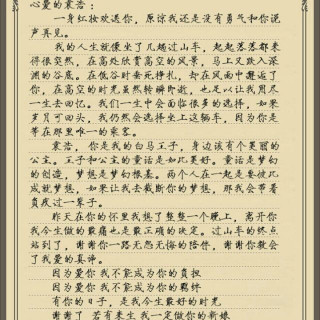 心爱的袁浩：
一身红妆欢送你，原谅我还是没有勇气和你说
声再见。
我的人生就像坐了几趟过山车，起起落落都来
得很突然，在高处欣赏高空的风景，马上又跌入深
渊的谷底。在低谷时垂死挣扎，却在风雨中邂逅了
你，在高空的时光虽然转瞬即逝，也足以让我用尽
一生去回忆。我们一生中会面临很多的选择，如果
岁月可回头，我仍然会选择坐上这辆车，因为你是
带在那里唯一的乘客。
袁浩，你是我的白马王子，身边该有个美丽的
公主。王子和公主的童话是如此美好。童话是梦幻
的创造，梦想是梦幻根基。两个人在一起是要彼此
成就梦想，如果让我去截断你的梦想，那我会带着
负疚过一辈子。
昨天在你的怀里我想了整整一个晚上，离开你
我今生做的最痛也是最正确的决定。过山车的终点
站到了，谢谢你一路无怨无悔的陪伴，谢谢你教会
了我爱的真谛。
因为爱你 我不能成为你的负担
因为爱你 我不能成为你的羁绊
有你的日子，是我今生最好的时光
谢谢了 若有来生 我一定做你的新娘